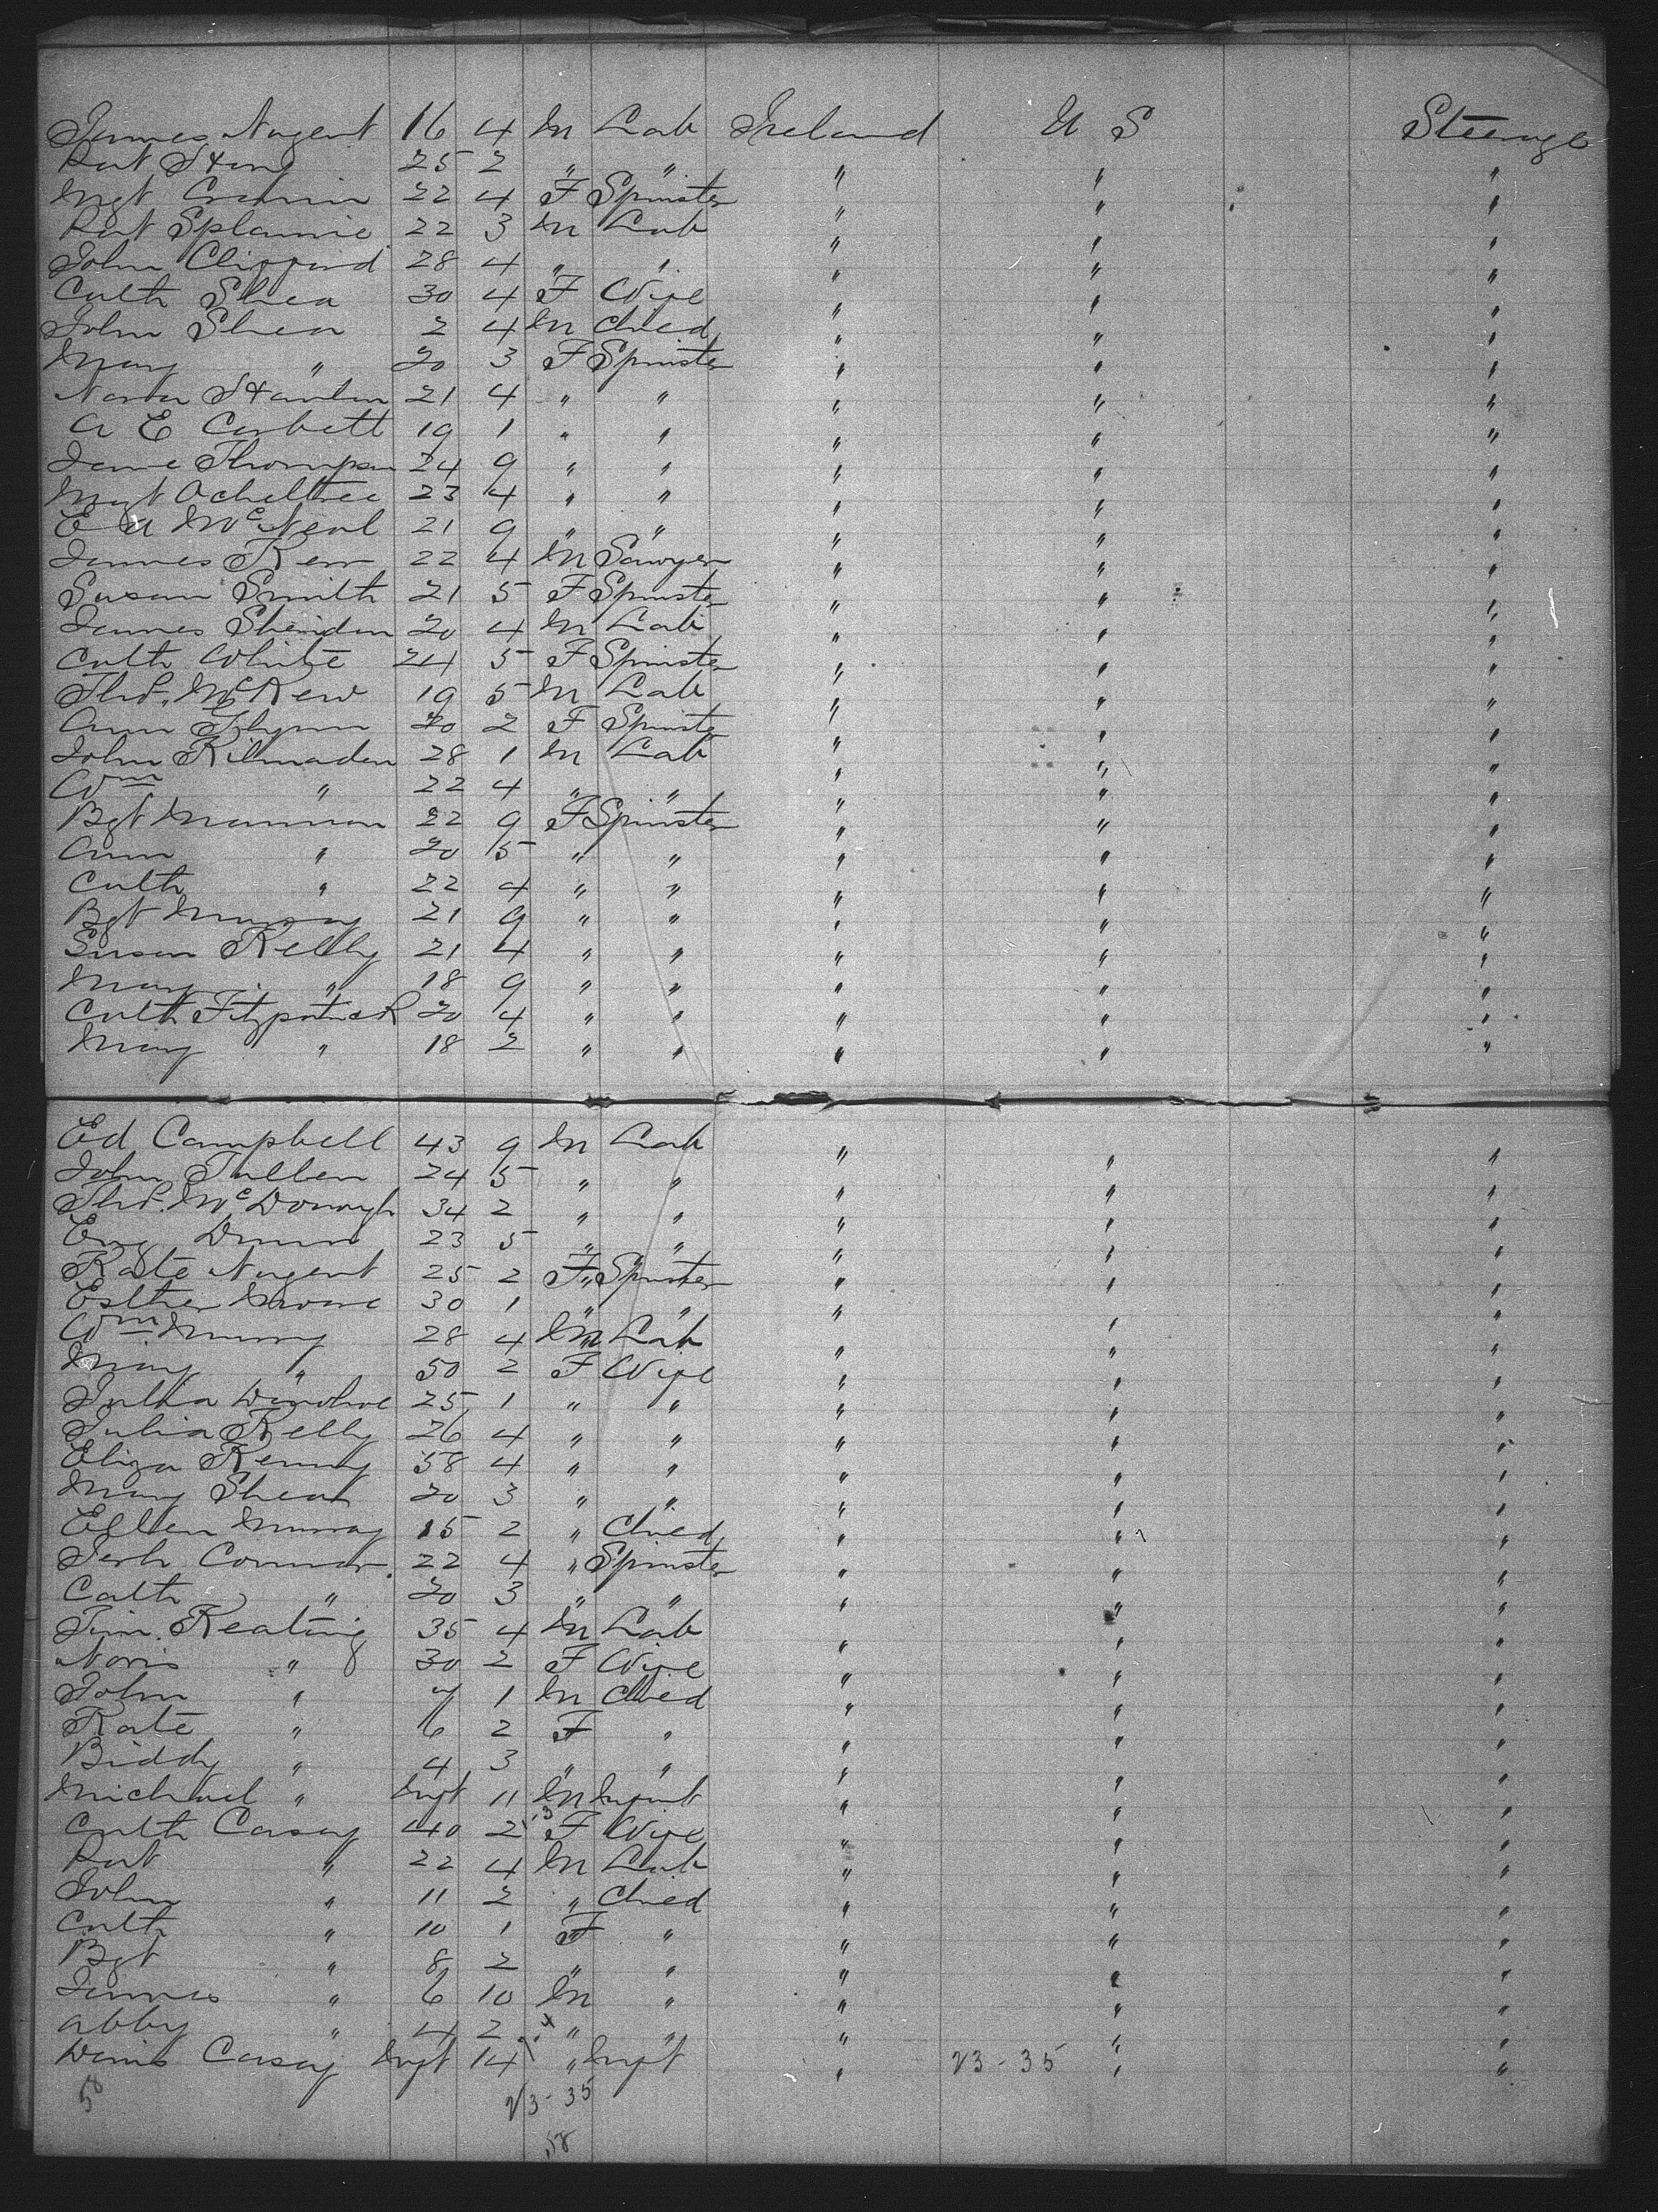 James Nugent 16 4 M Lab Ireland U S Steerage
Pat 25 2 " " " " "
Mgt Cronin 22 4 F Spinster " " "
Pat Splanne 22 3 M Lab " " "
John Clifford 28 4 " " " " "
Cath Shea 30 4 F Wife " " "
John Shea 2 4 M Child " " "
Mary " 20 3 F Spinster " " "
Nora Scanlan 21 4 " " " " "
A E Corbett 19 1 " " " " "
Jane Thompson 24 9 " " " " "
Mgt Ocheltree 23 4 " " " " "
E A McNeal 21 9 " " " " "
James Kerr 22 4 M Sawyer " " "
Susan Smith 21 5 F Spinster " " "
James Sheridan 20 4 M Lab " " "
Cath White 24 5 F Spinster " " "
Thos. McKew 19 5 M Lab " " "
Ann Flynn 20 2 F Spinster " " "
John Kilmaden 28 1 M Lab " " "
Wm " 22 4 " " " " "
Bgt Mannion 22 9 F Spinster " " "
Ann " 20 5 " " " " "
Cath " 22 4 " " " " "
Bgt Murray 21 9 " " " " "
Susan Kelly 21 4 " " " " "
Mary " 18 9 " " " " "
Cath Fitzpatrick 20 4 " " " " "
Mary " 18 2 " " " " "
Ed Campbell 43 9 M Lab " " "
John Tallen 24 5 " " " " "
Thos. McDonogh 34 2 " " " " "
Eug Dunn 23 5 " " " " "
Kate Nugent 25 2 F Spinster " " "
Esther Moore 30 1 " " " " "
Wm Murry 28 4 M Lab " " "
Mary " 50 2 F Wife " " "
Julia Donohoe 25 1 " " " " "
Julia Kelly 26 4 " " " " "
Eliza Kenny 58 4 " " " " "
Mary Shea 20 3 " " " " "
Ellen Murray 15 2 " Child " " "
Jerh Connor. 22 4 " Spinster " " "
Cath " 20 3 " " " " "
Tim. Keating 35 4 M Lab " " "
Noris " 30 2 F Wife " " "
John " 7 1 M Child " " "
Kate " 6 2 F " " " "
Biddy " 4 3 " " " " "
Michael " Inft 11 M Infant " " "
Cath Casey 40 2 F Wife " " "
Pat " 22 4 M Lab " " "
John " 11 2 " Child " " "
Cath " 10 1 F " " " "
Bgt " 8 2 " " " " "
James " 6 10 M " " " "
Abby " 4 2 " " " " "
Denis Casey Inft 14 " Inft " 23-35 " "
58 23-35
58